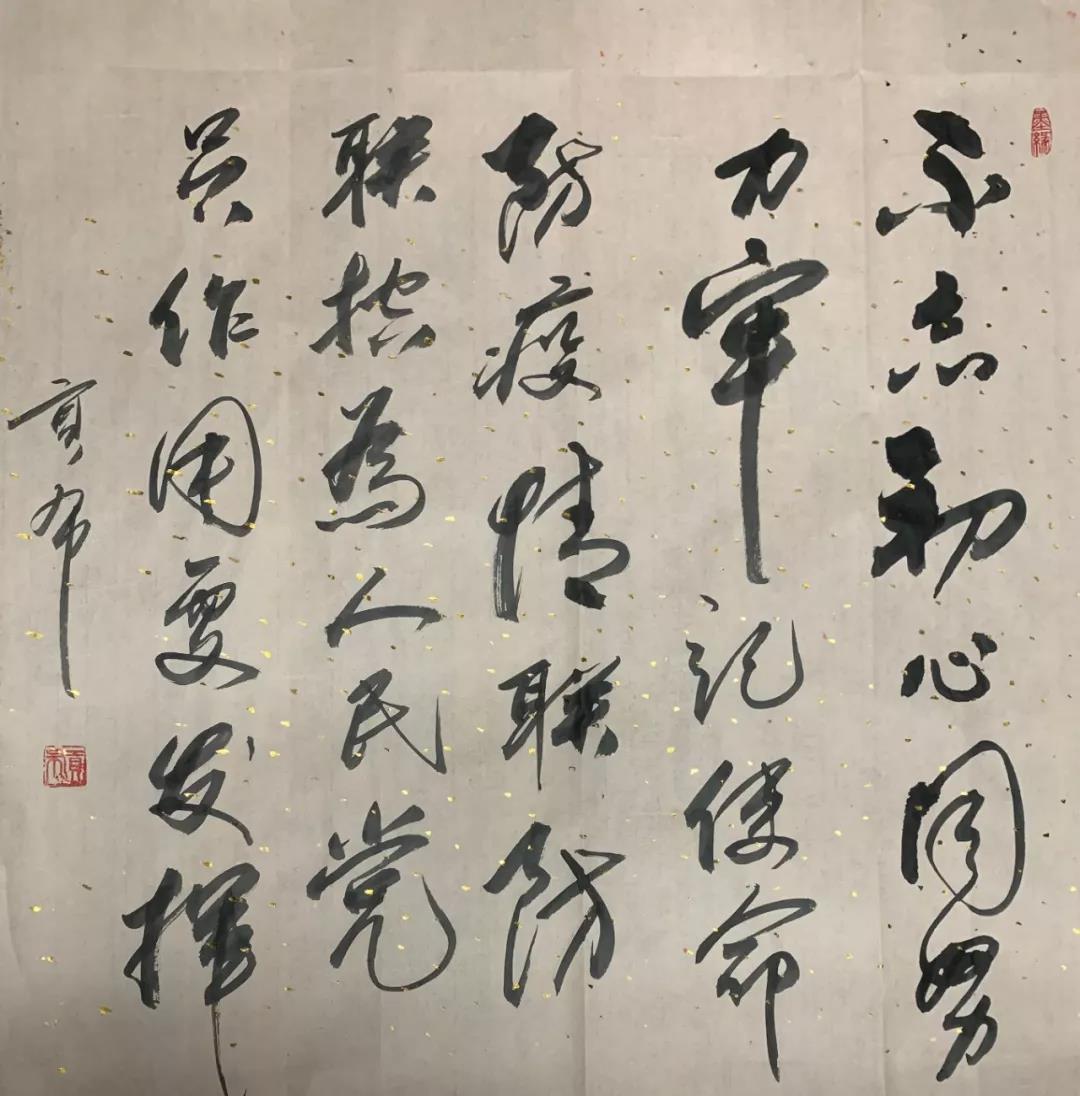 不忘初心同努
力牢记使命
防疫情联防
联控為人民党
员作用要发挥
墨缘